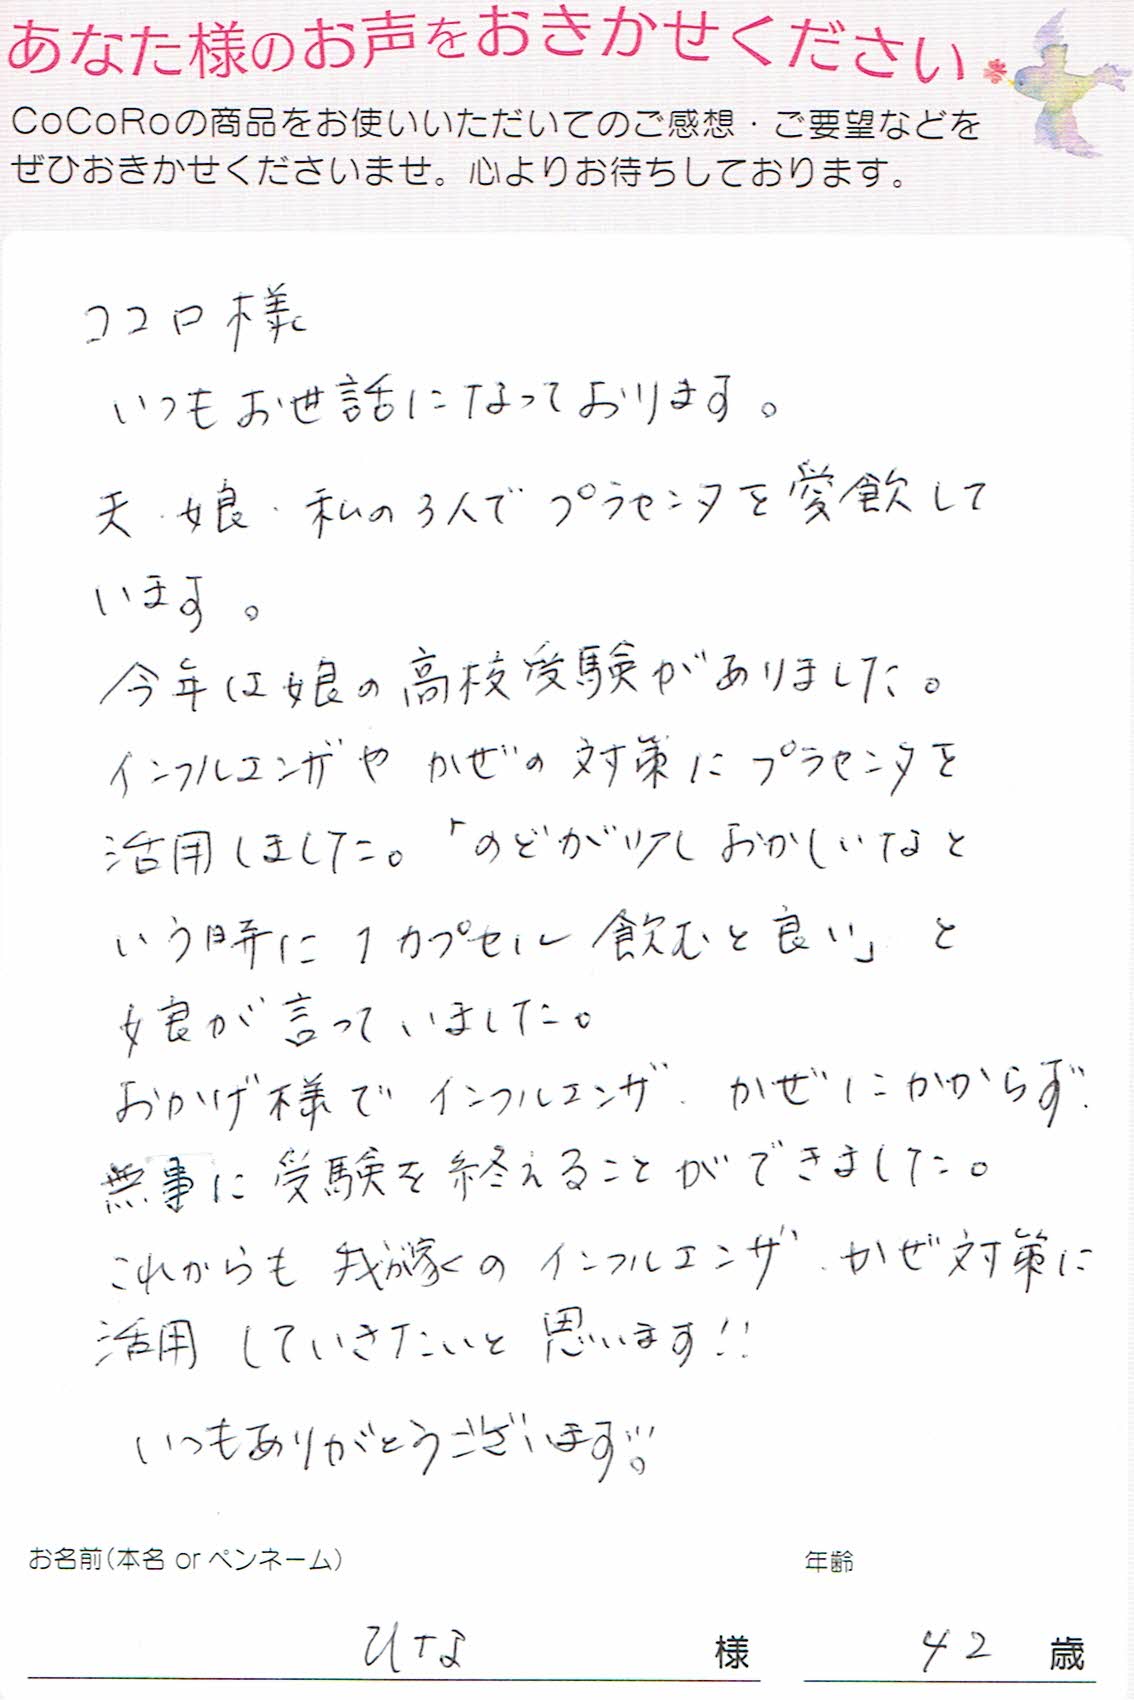 あなた様のお声をおきかせください
CoCoRoの商品をお使いいただいてのご感想・ご要望などを
ぜひおきかせくださいませ。心よりお待ちしております。
ココロ様
いつもお世話になっております。
夫・娘・私の3人でプラセンタを愛飲して
います。
今年は娘の高校受験がありました。
インフルエンザやかぜの対策にプラセンタを
活用しました。「のどが少しおかしいなと
いう時に1カプセル飲むと良い」と
娘が言っていました。
おかげ様でインフルエンザ、かぜにかからず、
無事に受験を終えることができました。
これからも我が家のインフルエンザ、かぜ対策に
活用していきたいと思います!!
いつもありがとうございます!!。
お名前(本名 or ペンネーム) 年齢
ひな 様 42 歳